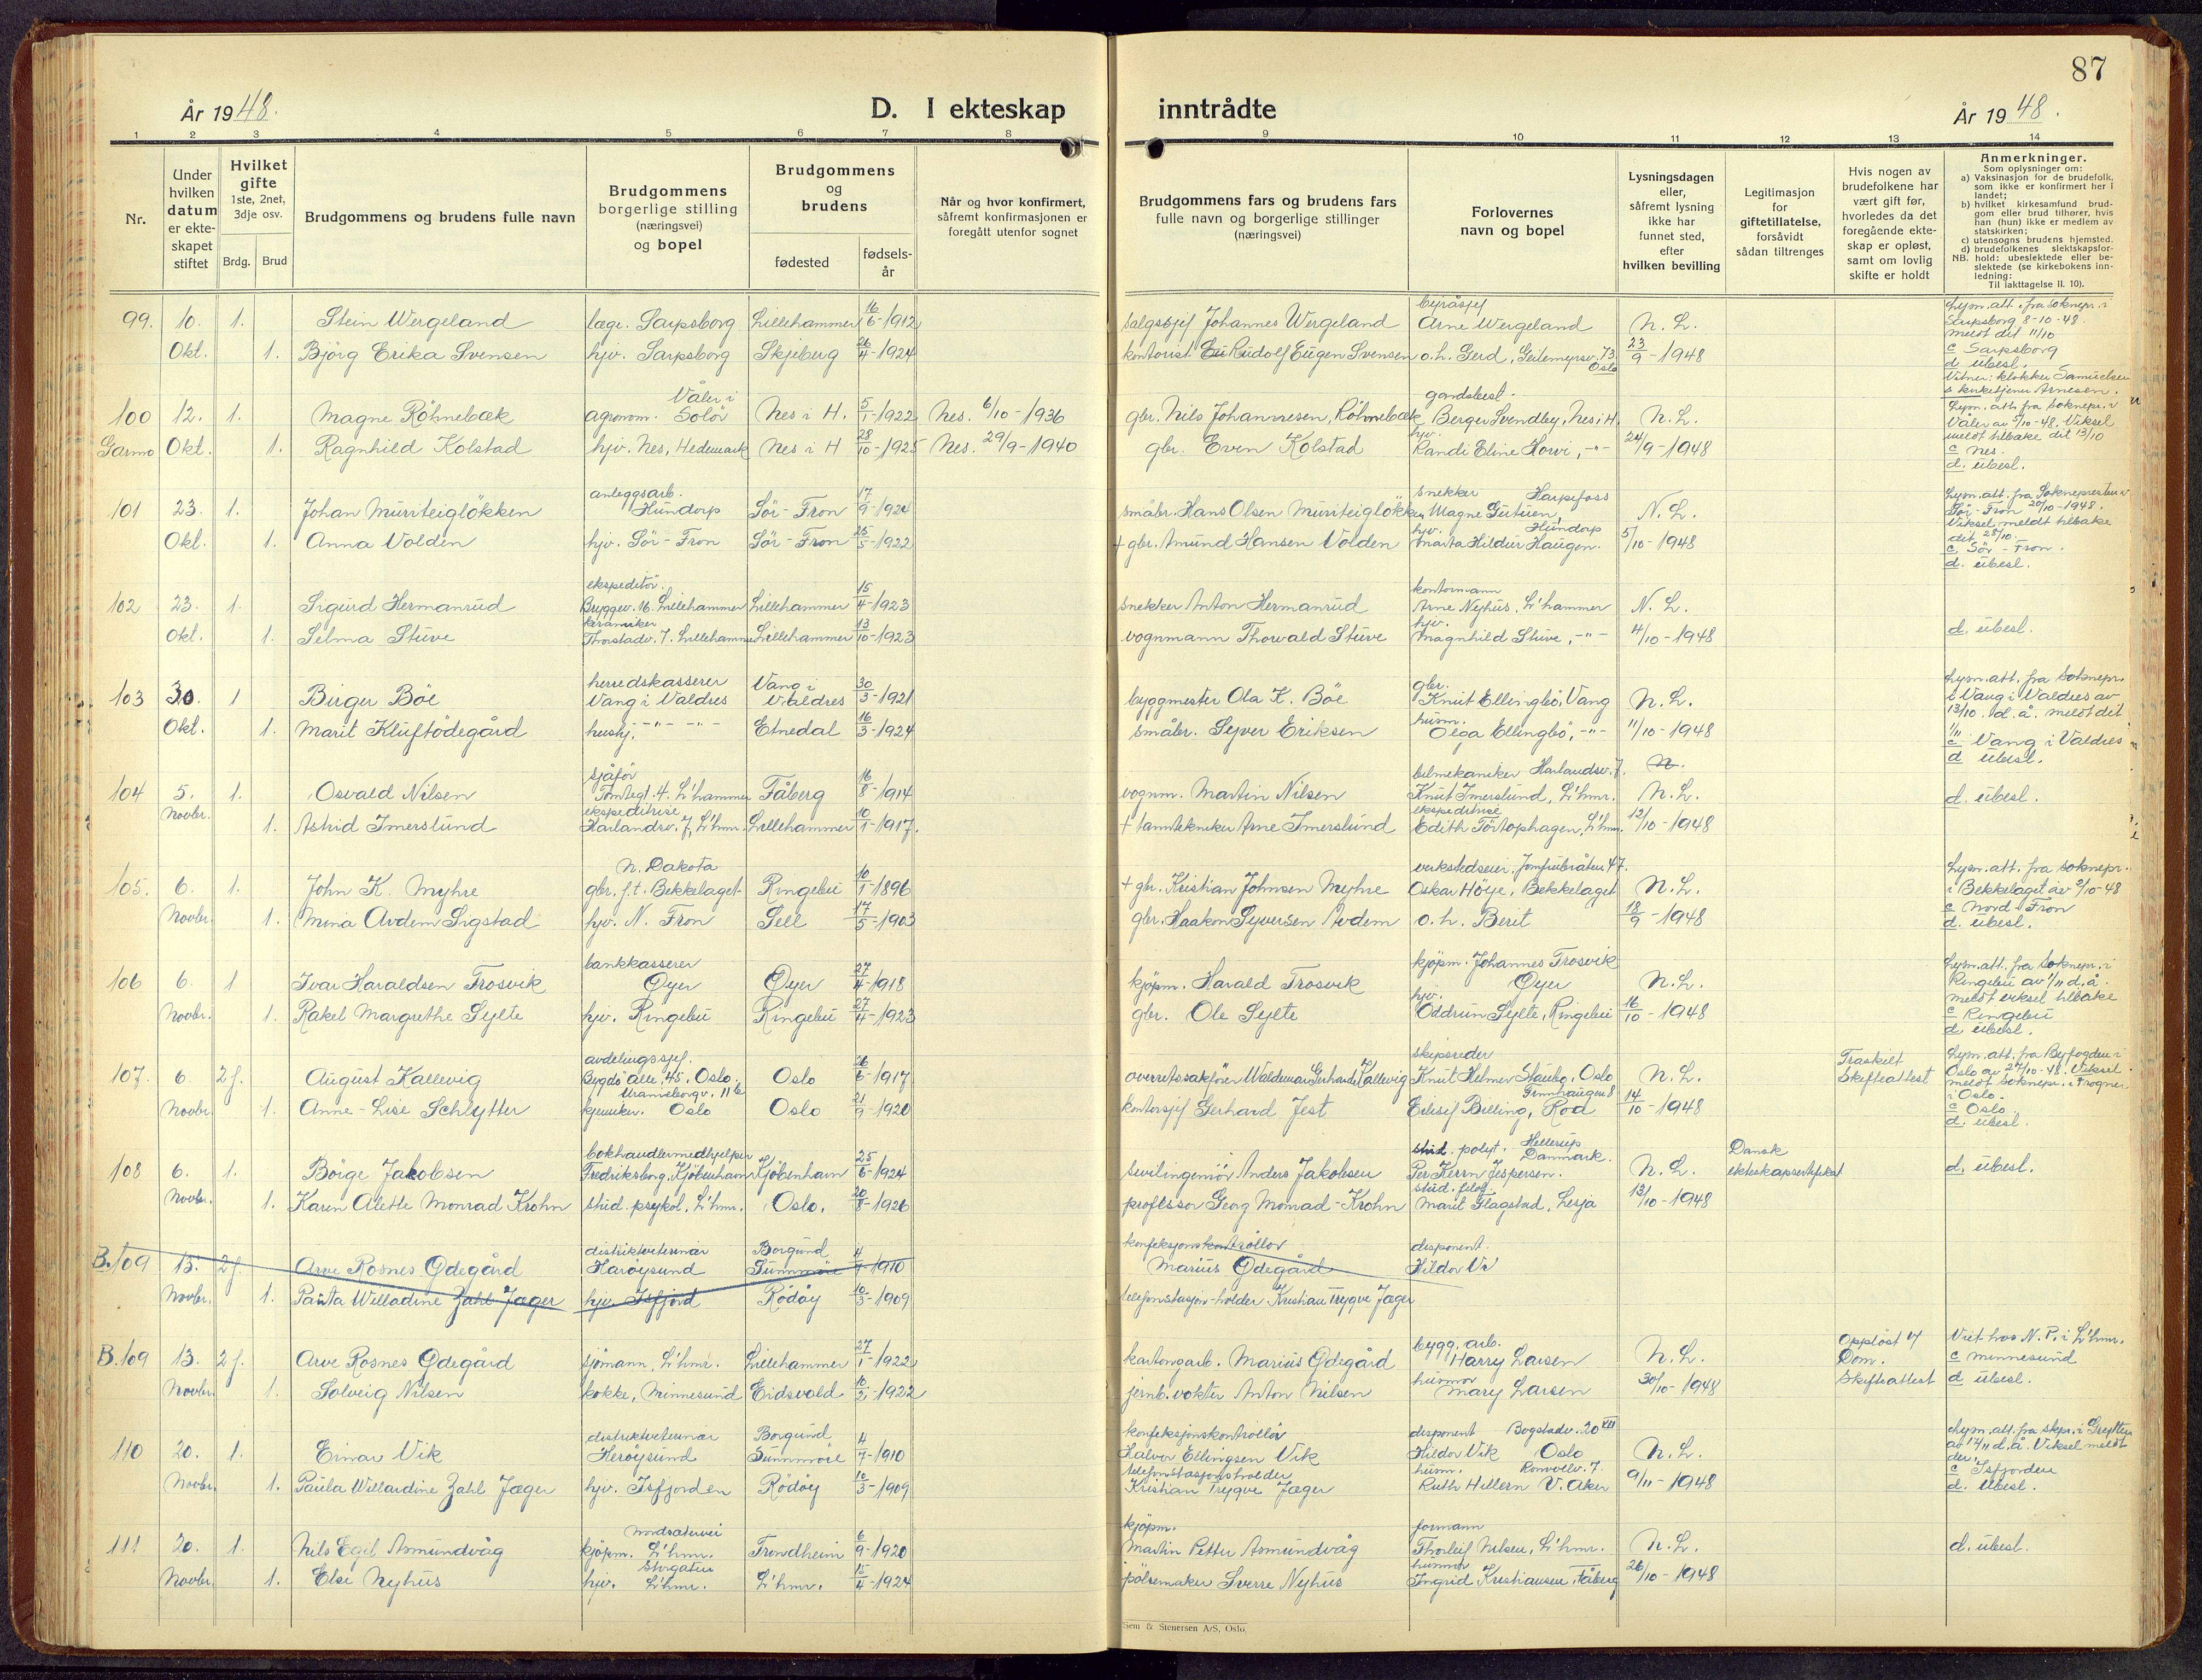 87
År 1948.
D. I ekteskap inntrådte
År 1948.
1 2 3 4 5 6 7 8 9 10 11 12 13 14
Nr.
Under hvilken datum er ekteskapet stiftet
Hvilket gifte 1ste, 2net, 3dje osv.
Brdg. Brud
Brudgommens og brudens fulle navn
Brudgommens borgerlige stilling (næringsvei) og bopel
Brudgommens og brudens
fødested
fødselsår
Når og hvor konfirmert, såfremt konfirmasjonen er foregått utenfor sognet
Brudgommens fars og brudens fars fulle navn og borgerlige stillinger (næringsvei)
Forlovernes navn og bopel
Lysningsdagen eller, såfremt lysning ikke har funnet sted, efter hvilken bevilling
Legitimasjon for giftetillatelse, forsåvidt sådan tiltrenges
Hvis nogen av brudefolkene har vært gift før, hvorledes da det foregående ekteskap er opløst, samt om lovlig skifte er holdt
Anmerkninger.
Som oplysninger om:
a) Vaksinasjon for de brudefolk, som ikke er konfirmert her i landet;
b) hvilket kirkesamfund brudgom eller brud tilhører, hvis han (hun) ikke er medlem av statskirken;
c) utensogns brudens hjemsted.
d) brudefolkenes slektskapsforhold: ubeslektede eller beslektede (se kirkebokens innledning:
NB.
Til iakttagelse II. 10).
99. 10. 1. Stein Wergeland læge. Sarpsborg Lillehammer 16/6-1912 salgssjef Johannes Wergeland byråsjef Arne Wergeland N. L. Lysn. att. fra Soknepr. i Sarpsborg 8-10-48. meldt dit 11/10
Okt. 1. Bjørg Erika Svensen hjv. Sarpsborg Skjeberg 26/4-1924 kontorist Rudolf Eugen Svensen o.h. Gerd, Geitemyrsv. 73 Oslo 23/9-1948 c Sarpsborg d. ubesl. Vitner: klokker Samuelsen & kirketjener Arnesen.
100 12. 1. Magne Röhnebæk agronom. Våler i Solör Nes i H. 5/1-1922 Nes. 6/10-1936 gbr. Nils Johannesen Röhnebæk gardsbest. Berger Svendby, Nes i H. N. L. Lysn. att. fra Soknepr. i Våler av 5/10-48. Viksel meldt tilbake dit 13/10
Garmo Okt. 1. Ragnhild Kolstad hjv. Nes, Hedemark Nes i H 28/10-1925 Nes. 29/9-1940 gbr. Even Kolstad hjv. Randi Eline Horve, -"- 24/9-1948 c nes. d. ubesl.
101 23. 1. Johan Murrteigløkken anleggsarb. Hundorp Sör-Fron 17/9-1924 småbr. Hans Olsen Murrteigløkken snekker Harpefoss Magne Gutuen, N. L. Lysn. att. fra Soknepresten i Sör-Fron 20/10-1948. Viksel meldt tilbake dit 25/10.
Okt. 1. Anna Volden hjv. Sör-Fron Sör-Fron 25/5-1922 + gbr. Amund Hansen Volden hjv. Hundorp Marta Hildur Haugen. 5/10-1948 c. Sör-Fron. d. ubesl.
102 23. 1. Sigurd Hermanrud ekspeditör. Bryggev. 16. Lillehammer Lillehammer 15/4-1923 snekker Anton Hermanrud kontormann Arne Nyhus, L'hammer N. L.
Okt. 1. Selma Stuve keramiker Thorstadv. 7. Lillehammer Lillehammer 13/10-1923 vognmann Thorvald Stuve hjv. Magnhild Stuve, -"- 4/10-1948 d. ubesl.
103 30. 1 Birger Böe herredskasserer Vang i Valdres Vang i Valdres 30/3-1921 byggmester Ola K. Böe gbr. Knut Ellingbö, Vang N. L. Lysn. att. fra Soknepr. i Vang i Valdres av 13/10. d. å. meldt dit 1/11
Okt. 1. Marit Kluftödegård hushj. -"- -"- Etnedal 16/3-1924 småbr. Syver Eriksen husm. Olga Ellingbö, -"- 11/10-1948 c Vang i Valdres d ubesl.
104 5. 1. Osvald Nilsen sjåför Tomtegt. 4. L'hammer Fåberg 16/8-1914 vognm. Martin Nilsen bilmekaniker Harlandsv. 7. Knut Imerslund, L'hmr. N. L. d. ubesl.
Novbr. 1. Astrid Imerslund ekspeditrise Harlandsv. 7, L'hmr. Lillehammer 10/1-1917. + tanntekniker Arne Imerslund ekspeditrise Edith Törtophagen, L'hmr. 12/10-1948
105. 6. 1. John K. Myhre N. Dakota gbr. f.t. Bekkelaget Ringebu 10/1-1896 + gbr. Kristian Johnsen Myhre verkstedseier. Jomfrubråten 47. Oskar Höye, Bekkelaget N. L. Lysn. att. fra Soknepr. i Bekkelaget av 9/10-48
Novbr. 1. Mina Avdem Sigstad hjv. N. Fron Sell 17/5-1903 gbr. Haakon Syversen Avdem o. h. Berit 18/9-1948 c Nord-Fron d. ubesl.
106 6. 1 Ivar Haraldsen Trosvik bankkasserer Øyer Øyer 27/4-1918 kjøpm. Harald Trosvik kjøpm. Johannes Trosvik Øyer N. L. Lysn. att. fra Soknepr. i Ringebu av 1/11 d. å. meldt viksel tilbake
Novbr. 1. Rakel Margrethe Sylte hjv. Ringebu Ringebu 27/4-1923 gbr. Ole Sylte hjv. Oddrun Sylte, Ringebu 16/10-1948 c Ringebu d. ubesl.
107. 6. 2 f. August Kallevig avdelingssjef. Bygdö alle, 45, Oslo. Oslo 26/6-1917 overrettssakfører Waldemar Gerhard Kallevig skipsreder Knut Helmer Staubo, Oslo N. L. Fraskilt Skifteattest Lysn. att. fra Byfogden i Oslo av 27/10-48. Viksel meldt Soknepr. i Frogner i Oslo.
Novbr. 1. Anne-Lise Schlytter Uranieborgv. 11 b kjemiker. Oslo Oslo 21/9-1920 kontorsjef Gerhard Jest Billing, Roa 14/10-1948 c Oslo. d. ubesl.
108 6. 1. Börge Jakobsen bokhandlermedhjelper Fredriksborg, Kjöbenhavn Kjöbenhavn 25/6-1924 sivilingeniör Anders Jakobsen stud. polyt. Hellerup Danmark. Per Jespersen. N. L. Dansk ekteskapssertifikat d. ubesl.
Novbr. 1. Karen Alette Monrad Krohn stud. psykol, L'hmr. Oslo. 20/8-1926 professor Georg Monrad-Krohn stud. filol. Marit Flagstad, Lesja 13/10-1948
B. 109 13. 2 f. Arve Rosnes Ødegård distriktveterinær Haröysund Borgund Sunnmöre 4/7-1910 konfeksjonskontrollør Marius Ødegård disponent. Hildor Vi
Novbr. 1. Paula Willadine Zahl Jæger hjv. Isfjord Rödöy 10/3-1909 telefonstasjon-holder Kristian Trygve Jæger
B. 109 13. 2 f. Arve Rosnes Ødegård sjömann, L'hmr. Lillehammer 27/1-1922 kartongarb. Marius Ødegård bygg. arb. Harry Larsen N. L. Opplöst v Dom. Skifteattest Viet hos N. P. i L'hmr.
Novbr. 1. Solveig Nilsen kokke, Minnesund Eidsvold 10/2-1922 jernb. vokter Anton Nilsen husmor Mary Larsen 30/10-1948 c minnesund d ubesl.
110 20. 1. Einar Vik distriktveterinær Heröysund Borgund Sunnmöre 4/7-1910 konfeksjonskontrollör Halvor Ellingsen Vik disponent Bogstadv. 20 VII Hildor Vik Oslo N. L. Lysn. att. fra skpr. i Grytten av 12/11 d. å. Viksel meldt
Novbr. 1. Paula Willardine Zahl Jæger hjv. Isfjorden Rödöy 10/3-1909 telefonstasjonsholder Kristian Trygve Jæger husm. Ruth Hellern V. Aker 9/11-1948 c Isfjorden d. Ubesl.
111 20. 1. Nils Egil Asmundvåg Nordseterveien kjöpm. L'hmr. Trondheim 6/9-1920 kjöpm. Martin Petter Asmundvåg formann Thorleif Nilsen, L'hmr. N. L. d. ubesl.
Novbr. 1. Else Nyhus Storgaten hjv. L'hmr. L'hmr. 15/4-1924 pölsemaker Sverre Nyhus husmor Ingrid Kristiansen, Fåberg 26/10-1948
Sem & Stenersen A/S, Oslo.